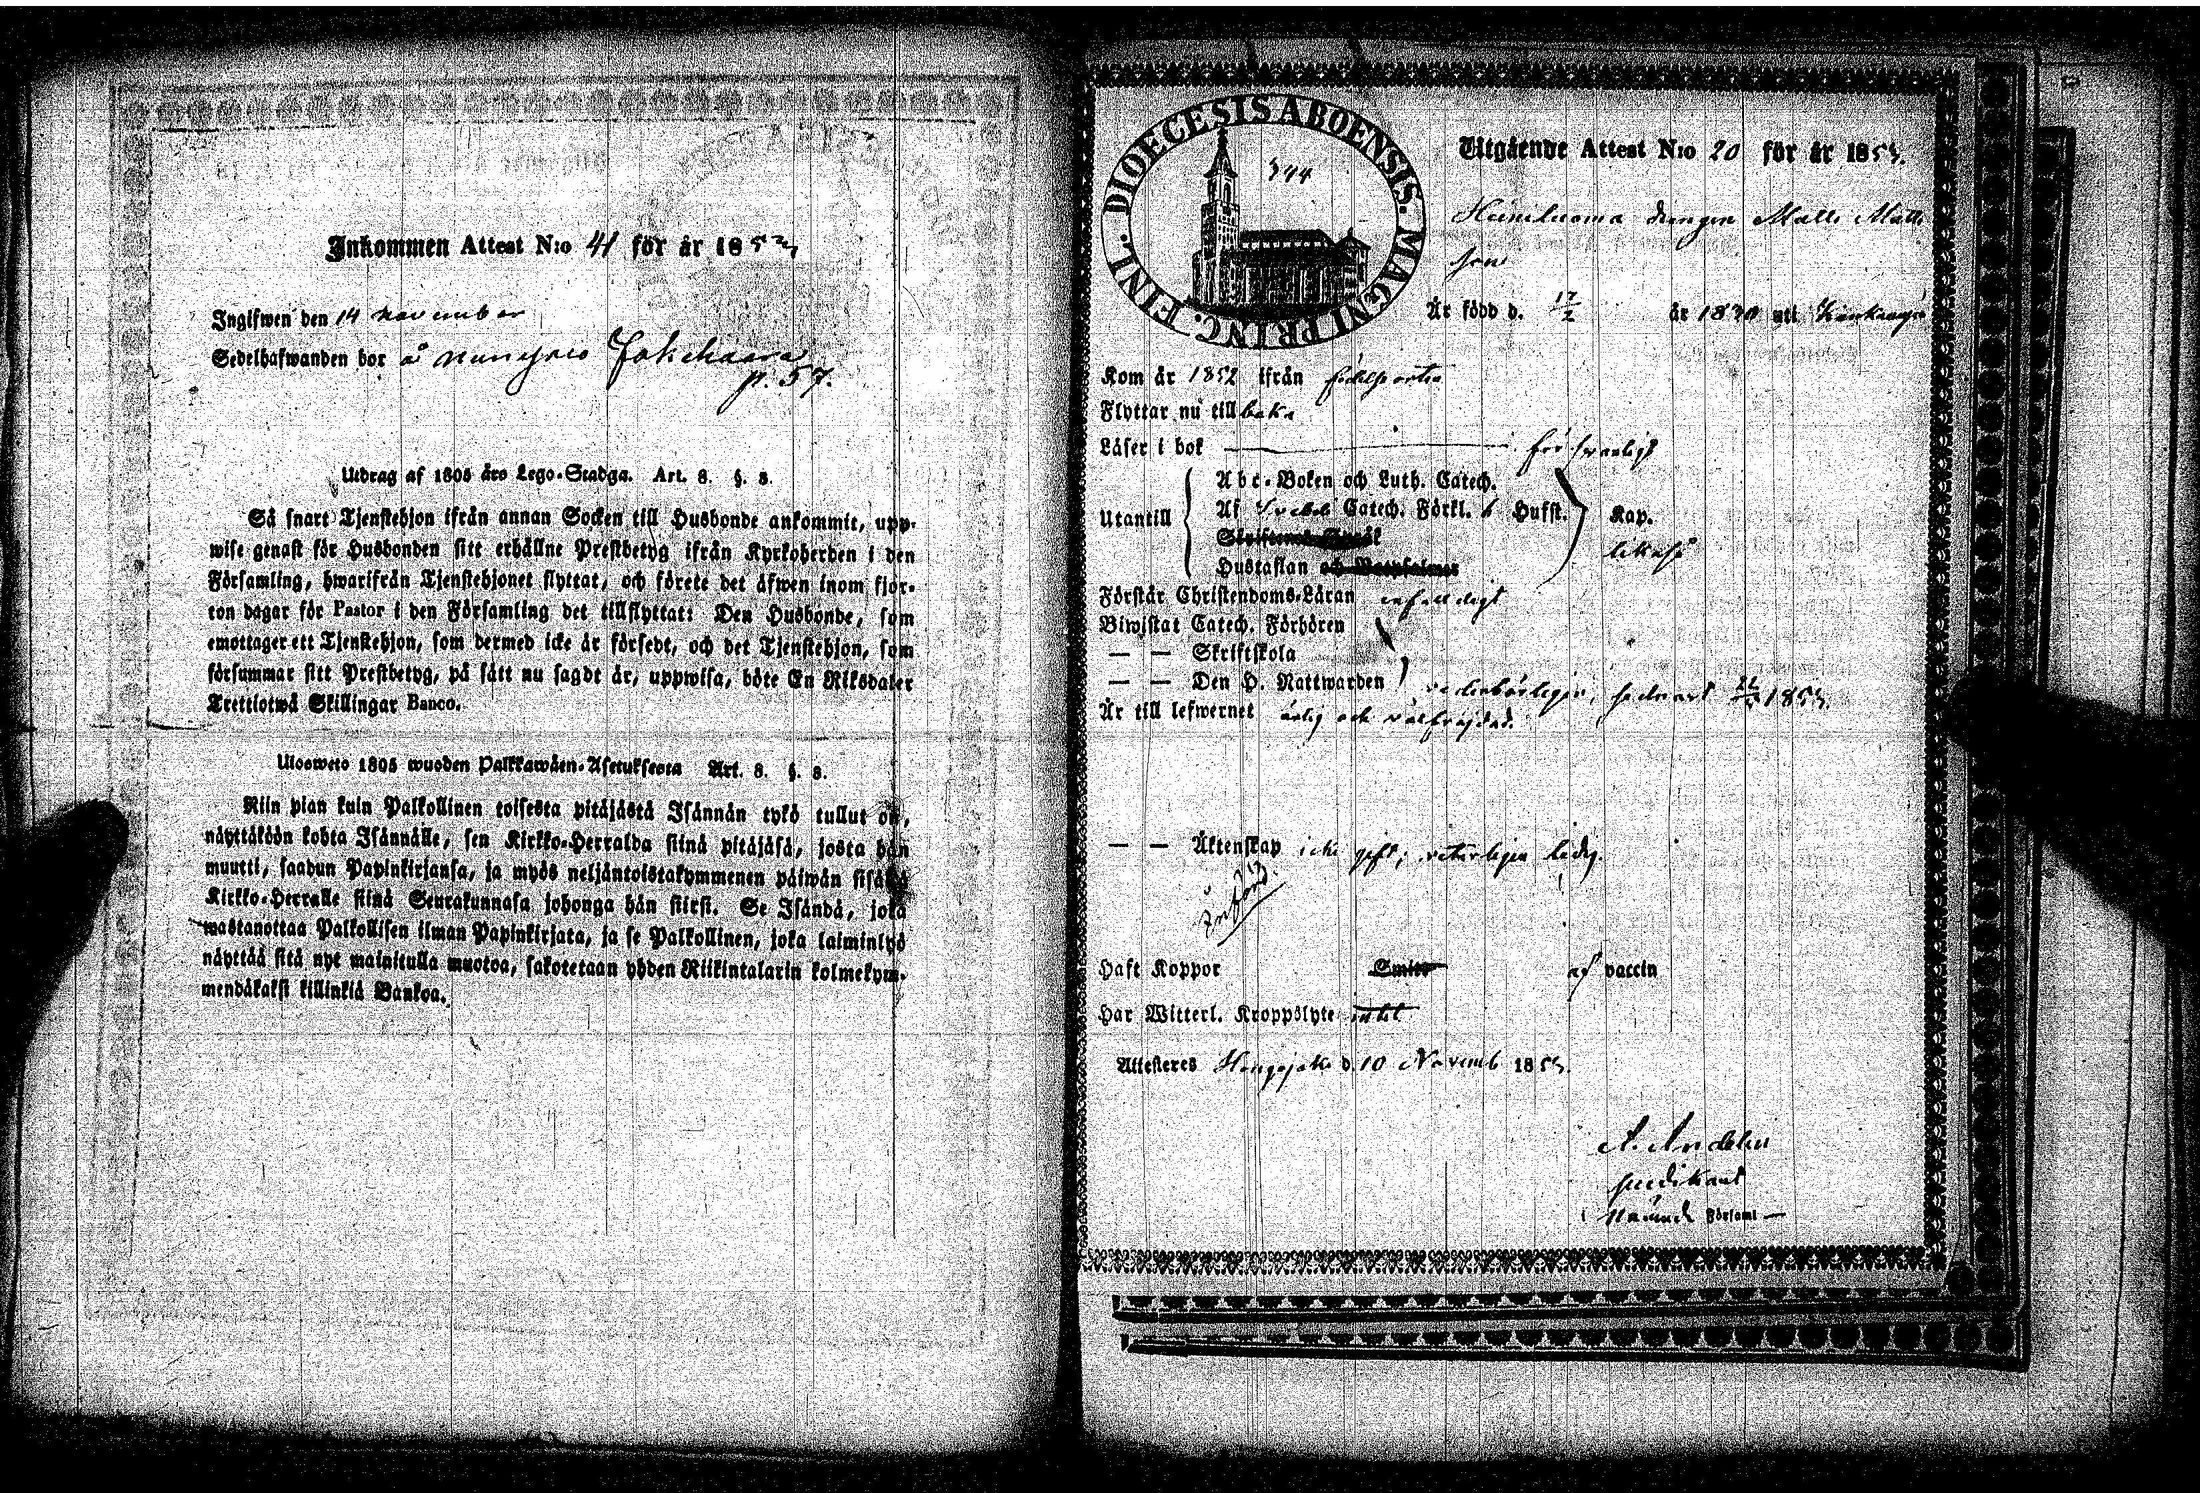 Inkommen Attest N:o 41 för år 185
Ingifwen den 14 november
Sedelhafwanden bor å
p. 57.
Utdrag af 1805 års Lego-Stadga. Art. 8. §. 8.
Så snart Tjenstehjon ifrån annan Socken till Husbonde ankommit, upp-
wise genast för Husbonden sitt erhållne Prestbetyg ifrån Kyrkoherden i den
Församling, hwarifrån Tjenstehjonet flyttat, och förete det äfwen inom fjor-
ton dagar för Pastor i den Församling det tillflyttat: Den Husbonde, som
emottager ett Tjenstehjon, som dermed icke är försedt, och det Tjenstehjon, som
försummar sitt Prestbetyg, på sätt nu sagdt är, uppwisa, böte En Riksdaler
Trettiotwå Skillingar Banco.
Ulosweto 1805 wuoden Palkkawäen-Asetuksesta Art. 8. §. 8.
Niin pian kuin Palkollinen toisesta pitäjästä Isännän tykö tullut on,
näyttäköön kohta Isännälle, sen Kirkko-Herralda siinä pitäjäsä, josta hän
muutti, saadun Papinkirjansa, ja myös neljäntoistakymmenen päiwän sisällä
Kirkko-Herralle siinä Seurakunnasa johonga hän siirsi. Se Isändä, joka
wastanottaa Palkollisen ilman Papinkirjata, ja se Palkollinen, joka laiminlyö
näyttää sitä nyt mainitulla muotoa, sakotetaan yhden Riikintalarin kolmekym-
mendäkaksi killinkiä Bankoa.
DIOECESIS ABOENSIS. MAGNI PRINC. FINL.
344
Utgående Attest N:o 20 för år 185
drengen Matts Matts
son
Är född d. 17/2 år 1830 uti
Kom år 1852 ifrån
Flyttar nu till baka
Läser i bok försvarligt
Utantill
Abc-Boken och Luth. Catech.
Af Svebel. Catech. Förkl. 6 Hufst.
Hustaflan
Kap.
likaså
Förstår Christendoms-Läran enfaldigt
Biwistat Catech. Förhören
— — Skriftskola
— — Den H. Nattwarden vederbörligen, sednast
Är till lefwernet ärlig och välfrejdad.
— — Äktenskap icke gift; veterligen ledig.
Införd.
Haft Koppor Smitt af vaccin
Har Witterl. Kroppslyte intet
Attesteras d. 10 Novemb 185
A. Andelin
predikant
i nämnd Församl